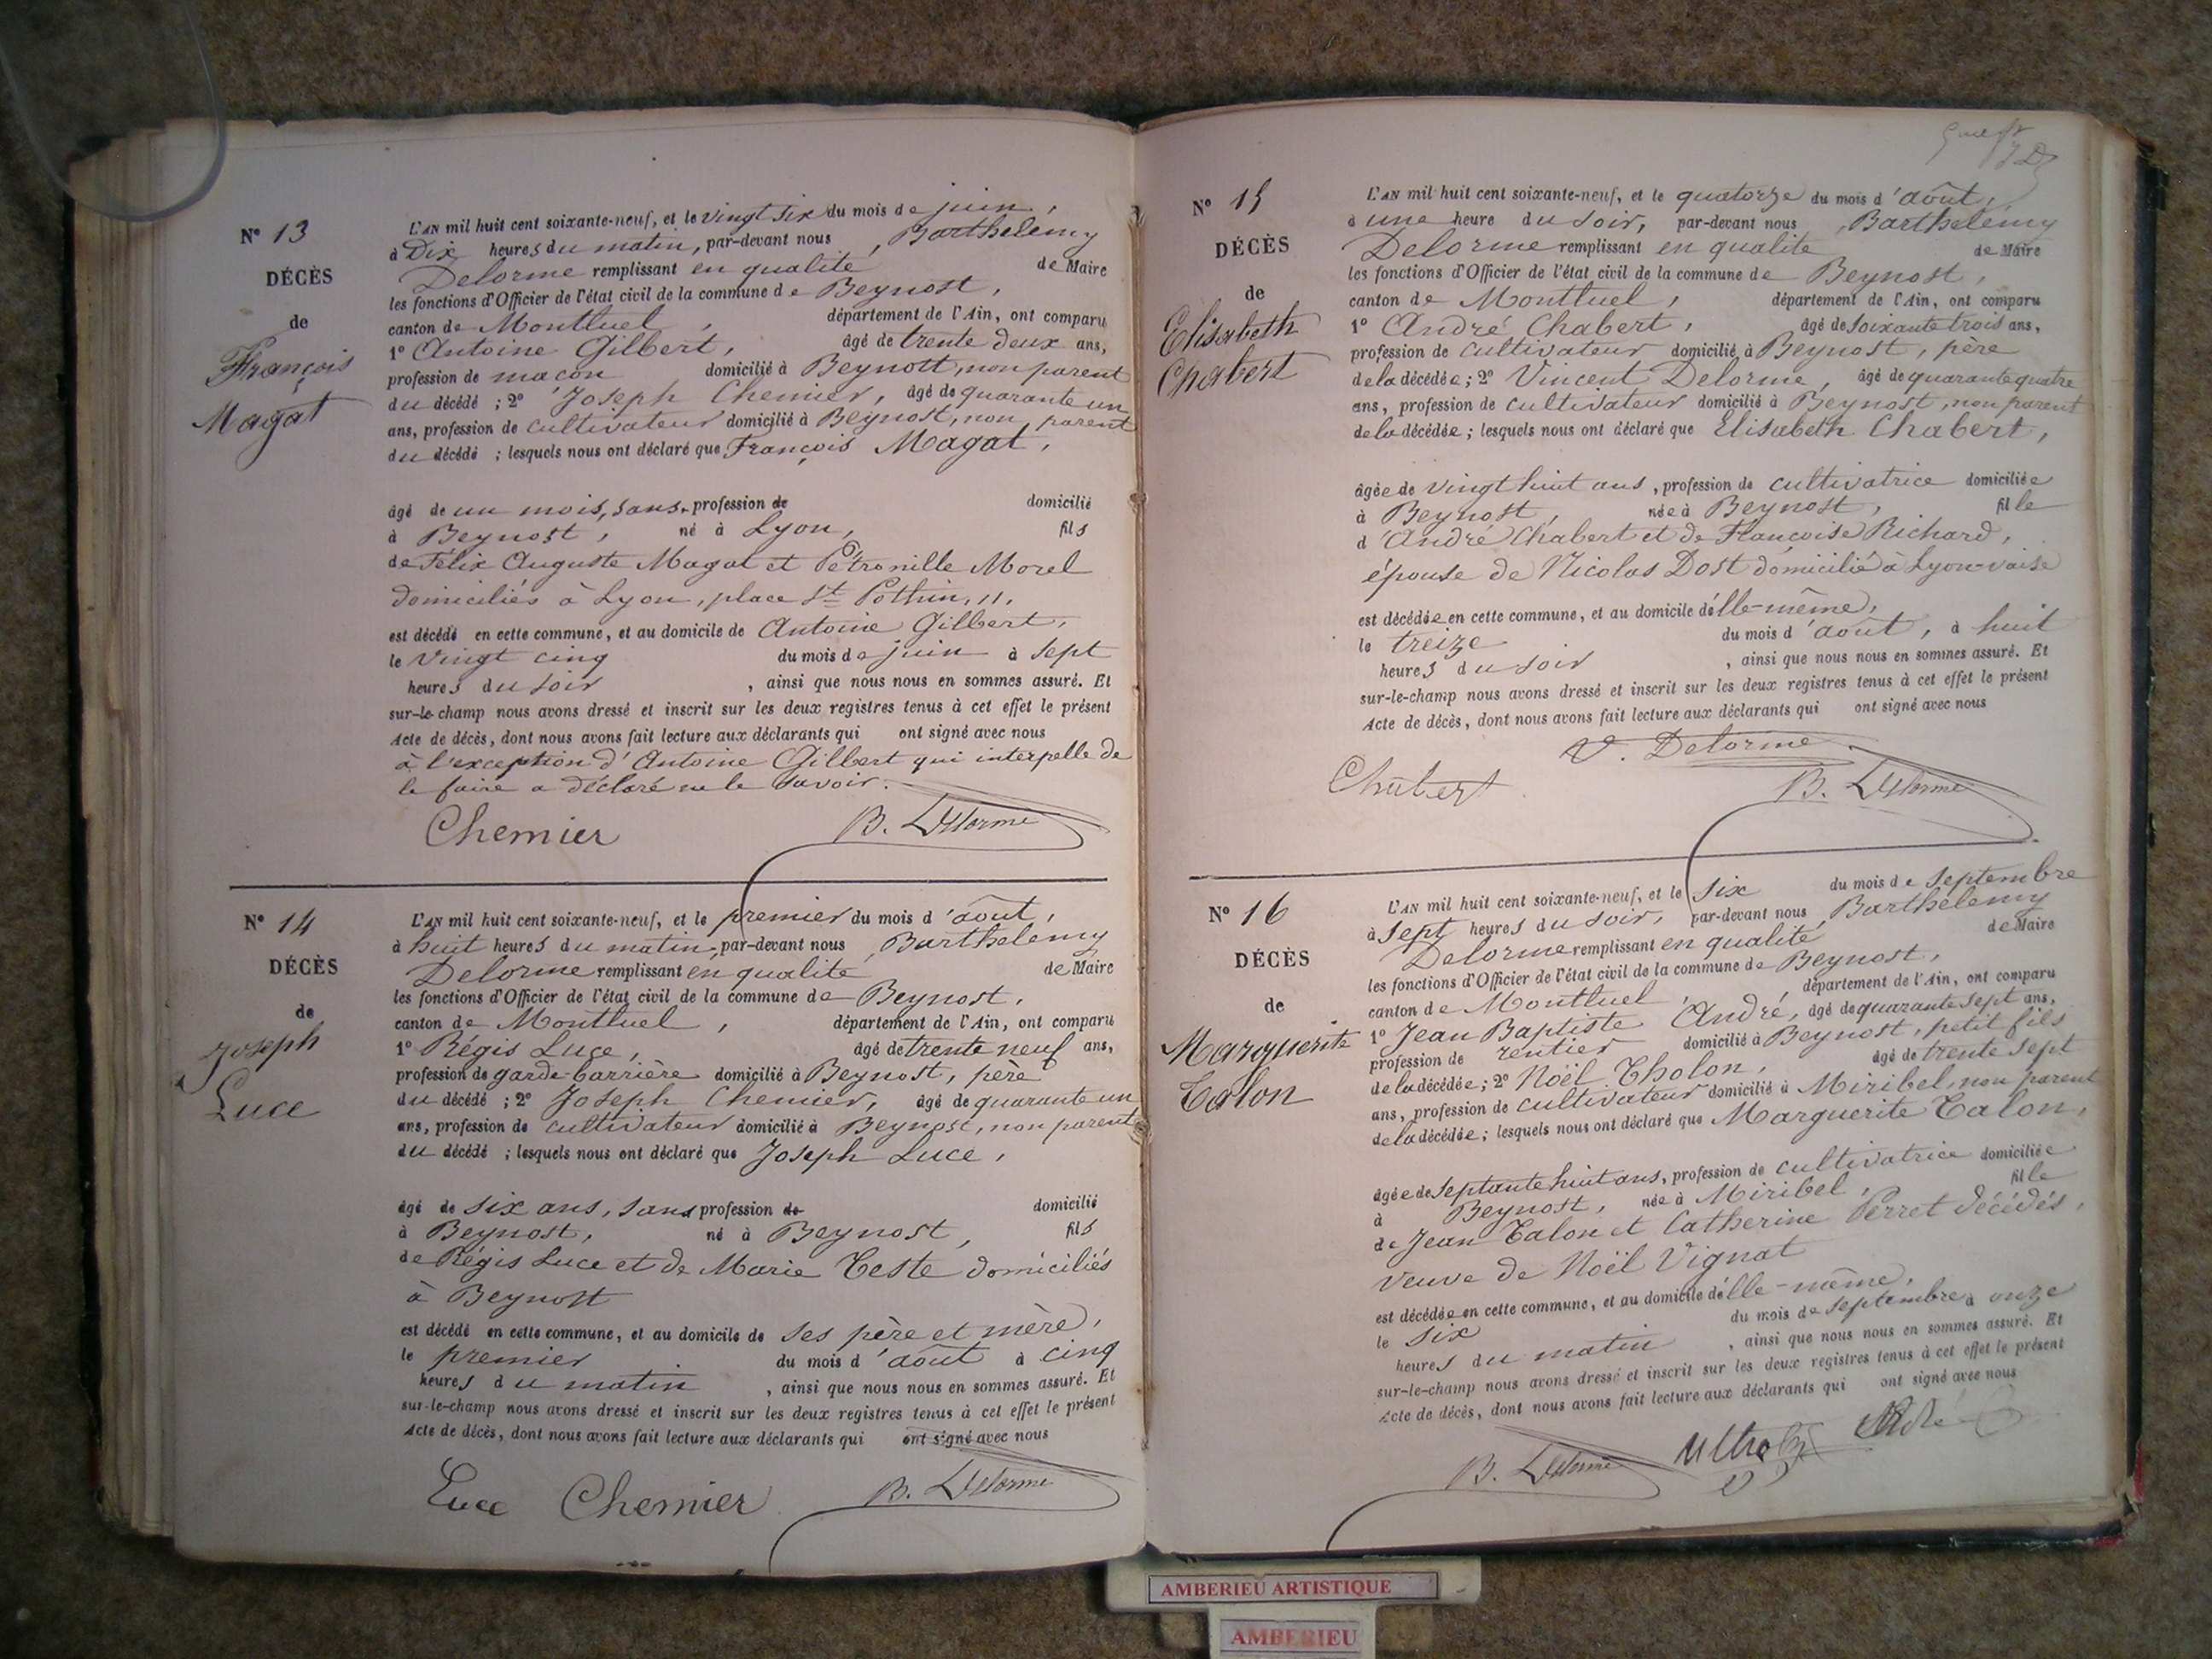 N° 13
DÉCÈS
de
François
Magat
L'AN mil huit cent soixante-neuf, et le vingt six du mois de juin,
à Dix heures du matin, par-devant nous, Barthelemy
Delorme remplissant en qualité de Maire
les fonctions d'Officier de l'état civil de la commune de Beynost,
canton de Montluel, département de l'Ain, ont comparu
1° Antoine Gilbert, âgé de trente deux ans,
profession de maçon domicilié à Beynost, non parent
du décédé ; 2° Joseph Chemier, âgé de quarante un
ans, profession de cultivateur domicilié à Beynost, non parent
du décédé ; lesquels nous ont déclaré que François Magat,
âgé de un mois, sans profession de domicilié
à Beynost, né à Lyon, fils
de Félix Auguste Magat et Pétronille Morel
domiciliés à Lyon, place St Pothin, 11,
est décédé en cette commune, et au domicile de Antoine Gilbert,
le vingt cinq du mois de juin à sept
heures du soir, ainsi que nous nous en sommes assuré. Et
sur-le-champ nous avons dressé et inscrit sur les deux registres tenus à cet effet le présent
Acte de décès, dont nous avons fait lecture aux déclarants qui ont signé avec nous
à l'exception d'Antoine Gilbert qui interpelle de
le faire a déclaré ne le savoir.
Chemier B. Delorme
N° 14
DÉCÈS
de
Joseph
Luce
L'AN mil huit cent soixante-neuf, et le premier du mois d'août,
à huit heures du matin, par-devant nous, Barthelemy
Delorme remplissant en qualité de Maire
les fonctions d'Officier de l'état civil de la commune de Beynost,
canton de Montluel, département de l'Ain, ont comparu
1° Régis Luce, âgé de trente neuf ans,
profession de garde-barrière domicilié à Beynost, père
du décédé ; 2° Joseph Chemier, âgé de quarante un
ans, profession de cultivateur domicilié à Beynost, non parent
du décédé ; lesquels nous ont déclaré que Joseph Luce,
âgé de six ans, sans profession de domicilié
à Beynost, né à Beynost, fils
de Régis Luce et de Marie Teste domiciliés
à Beynost
est décédé en cette commune, et au domicile de ses père et mère,
le premier du mois d'août à cinq
heures du matin, ainsi que nous nous en sommes assuré. Et
sur-le-champ nous avons dressé et inscrit sur les deux registres tenus à cet effet le présent
Acte de décès, dont nous avons fait lecture aux déclarants qui ont signé avec nous
Luce Chemier B. Delorme
N° 15
DÉCÈS
de
Elisabeth
Chabert
L'AN mil huit cent soixante-neuf, et le quatorze du mois d'août,
à une heure du soir, par-devant nous, Barthelémy
Delorme remplissant en qualité de Maire
les fonctions d'Officier de l'état civil de la commune de Beynost,
canton de Montluel, département de l'Ain, ont comparu
1° André Chabert, âgé de soixante trois ans,
profession de cultivateur domicilié à Beynost, père
de la décédée ; 2° Vincent Delorme, âgé de quarante quatre
ans, profession de cultivateur domicilié à Beynost, non parent
de la décédée ; lesquels nous ont déclaré que Elisabeth Chabert,
âgée de vingt huit ans, profession de cultivatrice domiciliée
à Beynost, née à Beynost, fille
d'André Chabert et de Françoise Richard,
épouse de Nicolas Dost domicilié à Lyon-vaise
est décédée en cette commune, et au domicile d'elle-même,
le treize du mois d'août, à huit
heures du soir, ainsi que nous nous en sommes assuré. Et
sur-le-champ nous avons dressé et inscrit sur les deux registres tenus à cet effet le présent
Acte de décès, dont nous avons fait lecture aux déclarants qui ont signé avec nous
V. Delorme
Chabert B. Delorme
N° 16
DÉCÈS
de
Marguerite
Talon
L'AN mil huit cent soixante-neuf, et le six du mois de septembre
à sept heures du soir, par-devant nous, Barthélemy
Delorme remplissant en qualité de Maire
les fonctions d'Officier de l'état civil de la commune de Beynost,
canton de Montluel, département de l'Ain, ont comparu
1° Jean Baptiste André, âgé de quarante sept ans,
profession de rentier domicilié à Beynost, petit fils
de la décédée ; 2° Noël Tholon, âgé de trente sept
ans, profession de cultivateur domicilié à Miribel, non parent
de la décédée ; lesquels nous ont déclaré que Marguerite Talon,
âgée de septante huit ans, profession de cultivatrice domiciliée
à Beynost, née à Miribel, fille
de Jean Talon et Catherine Perret décédés,
veuve de Noël Vignat
est décédée en cette commune, et au domicile d'elle-même,
le six du mois de septembre à onze
heures du matin, ainsi que nous nous en sommes assuré. Et
sur-le-champ nous avons dressé et inscrit sur les deux registres tenus à cet effet le présent
Acte de décès, dont nous avons fait lecture aux déclarants qui ont signé avec nous
B. Delorme
AMBERIEU ARTISTIQUE
AMBERIEU